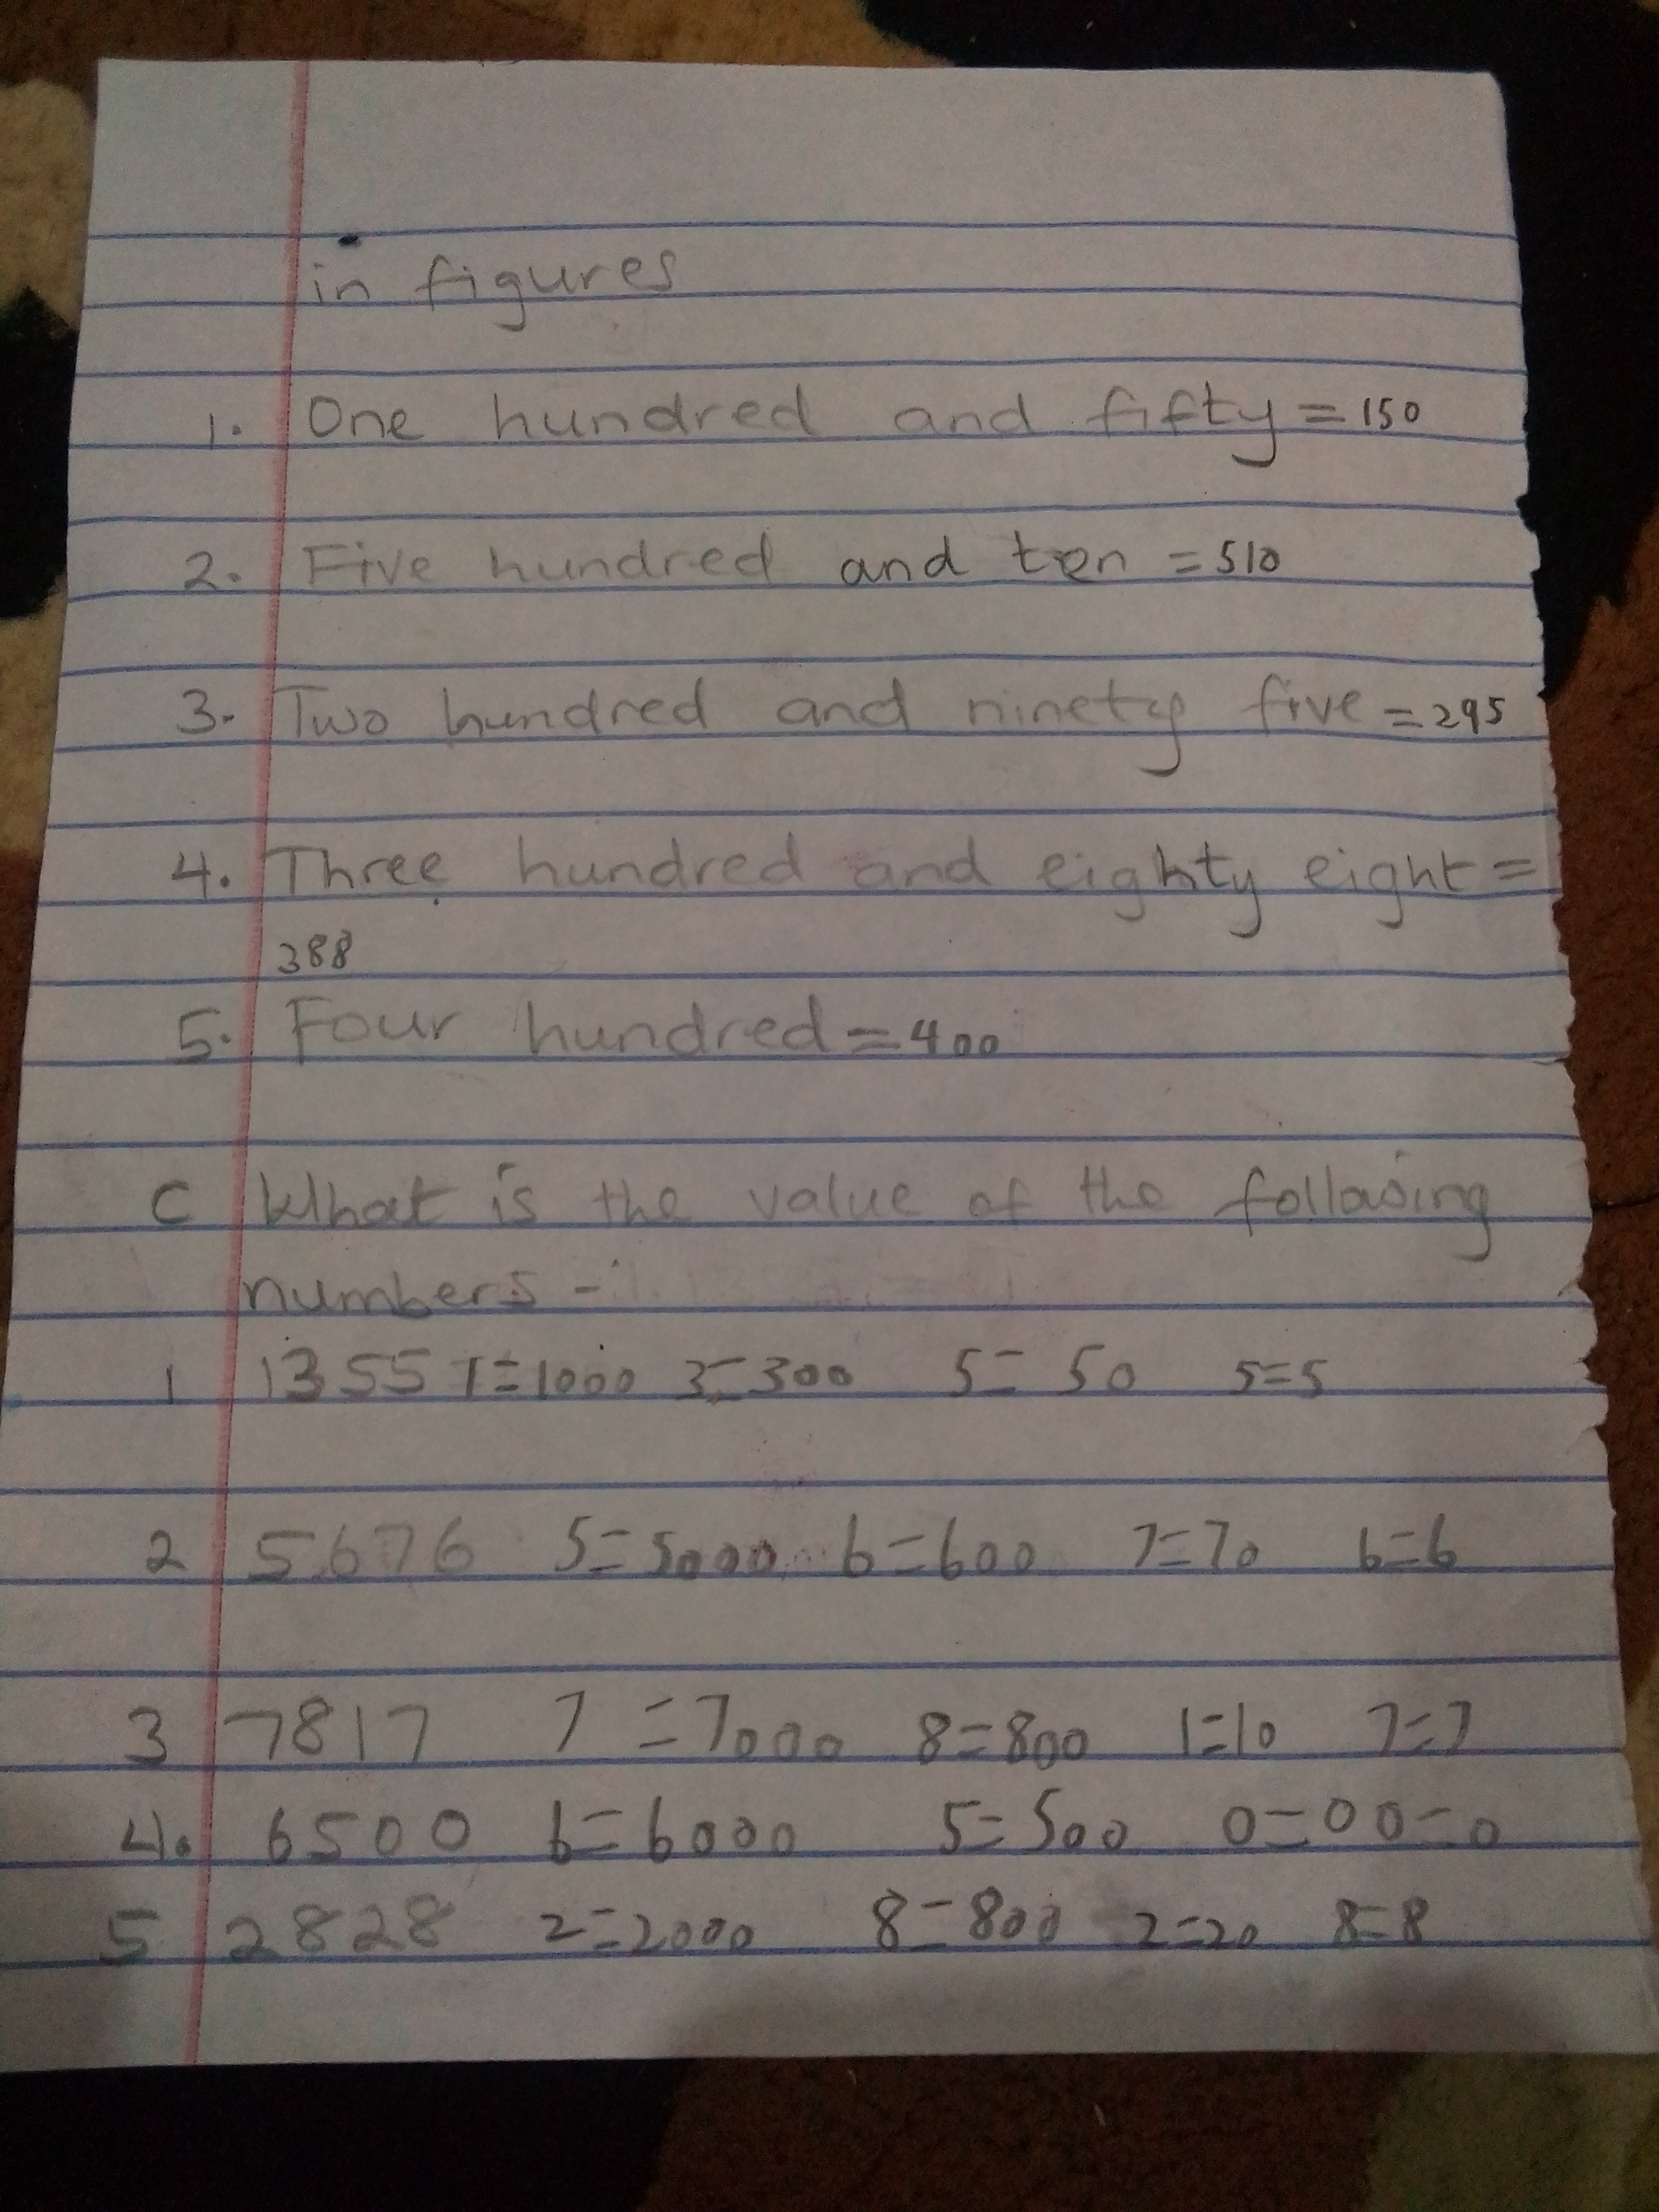 in figures
1. One hundred and fifty = 150
2. Five hundred and ten = 510
3. Two hundred and ninety five = 295
4. Three hundred and eighty eight =
388
5. Four hundred = 400
C What is the value of the following
numbers -
1 1355 1=1000 3=300 5= 50 5=5
2 5676 5=5000 6=600 7=70 6=6
3 7817 7=7000 8=800 1=10 7=7
4. 6500 6=6000 5=500 0=00=0
5 2828 2=2000 8=800 2=20 8=8